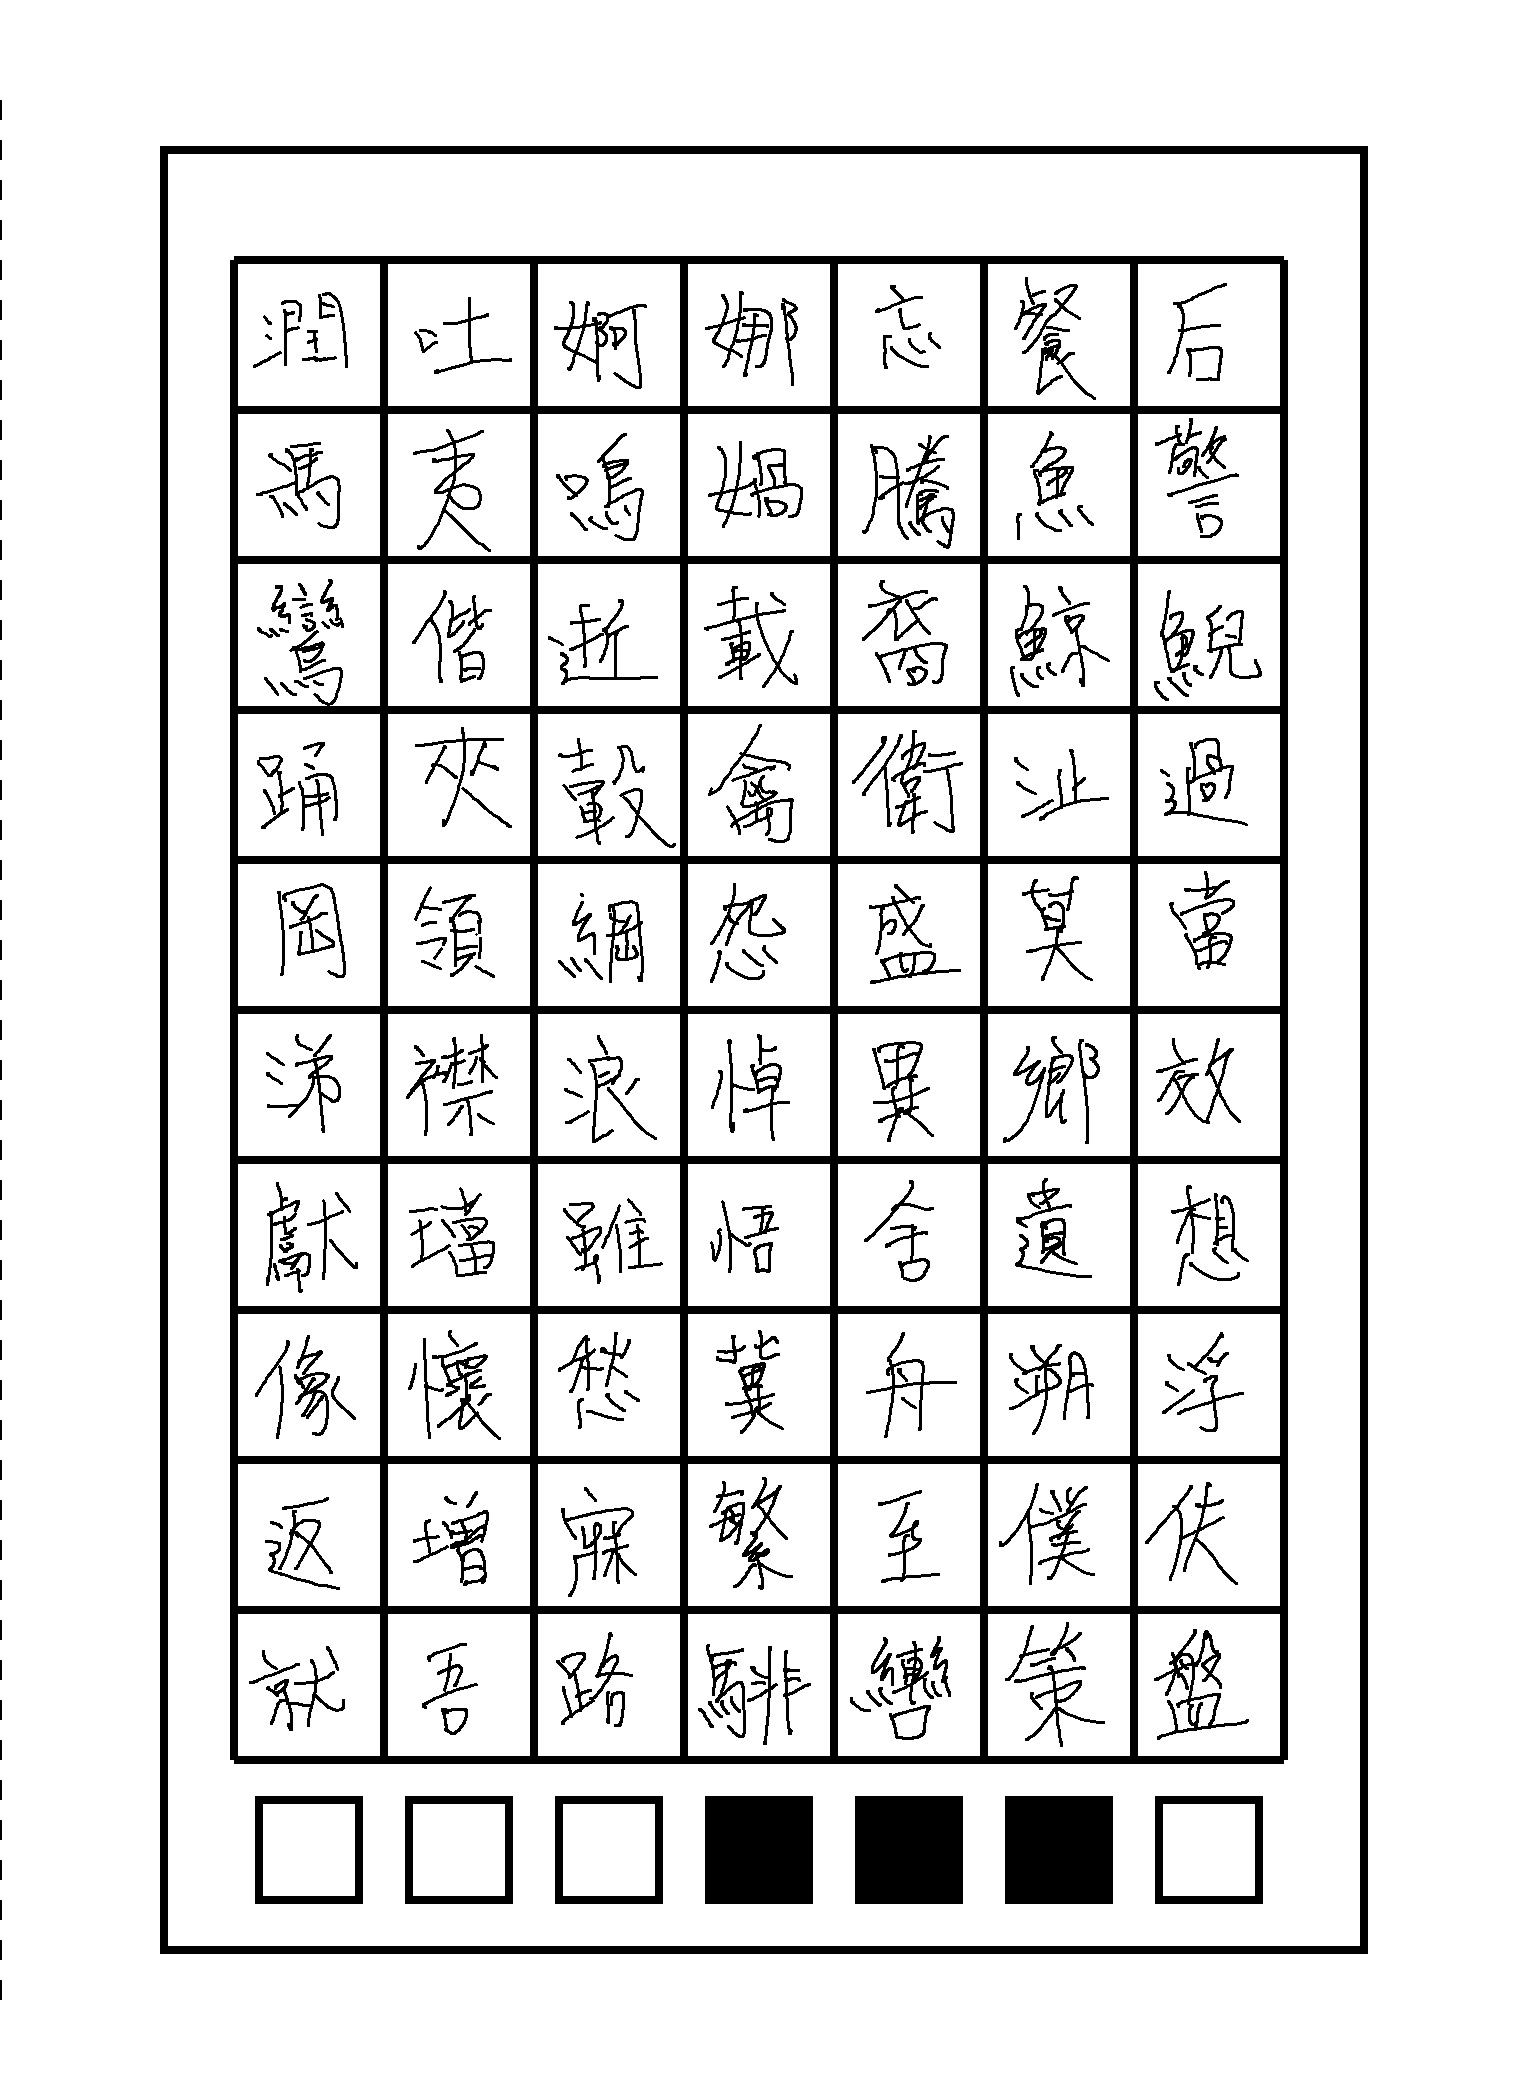 潤吐婀娜忘餐后
馮夷鳴媧騰魚警
鸞偕逝載裔鯨鯢
踴夾轂禽衛沚過
岡領綱怨盛莫當
涕襟浪悼異鄉效
獻璫雖悟舍遺想
像懷愁冀舟溯浮
返增寐繁至僕伕
就吾路騑轡策盤